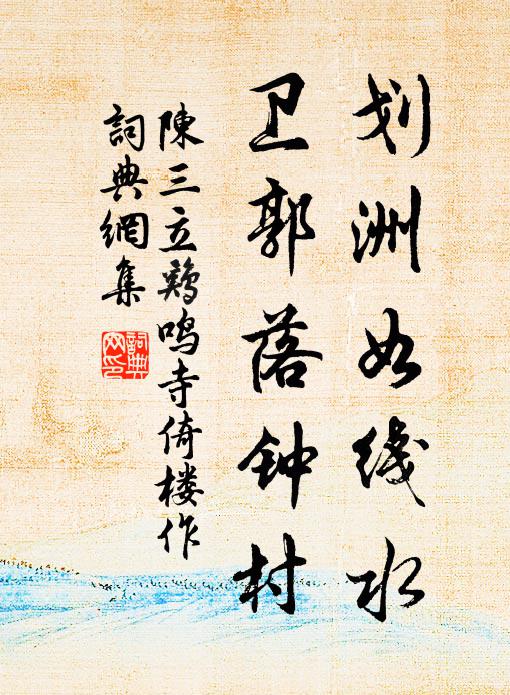 划洲如线水
卫郭落钟村
陳三立鸡鸣寺倚楼作
詞典網集
詞典
网印